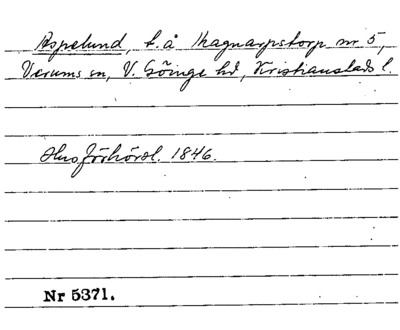 Aspelund, t. å Skagnarpstorp nr 5,
Verums sn, V. Göinge hd, Kristianstads l.
Husförhörsl. 1846.
Nr 5371.